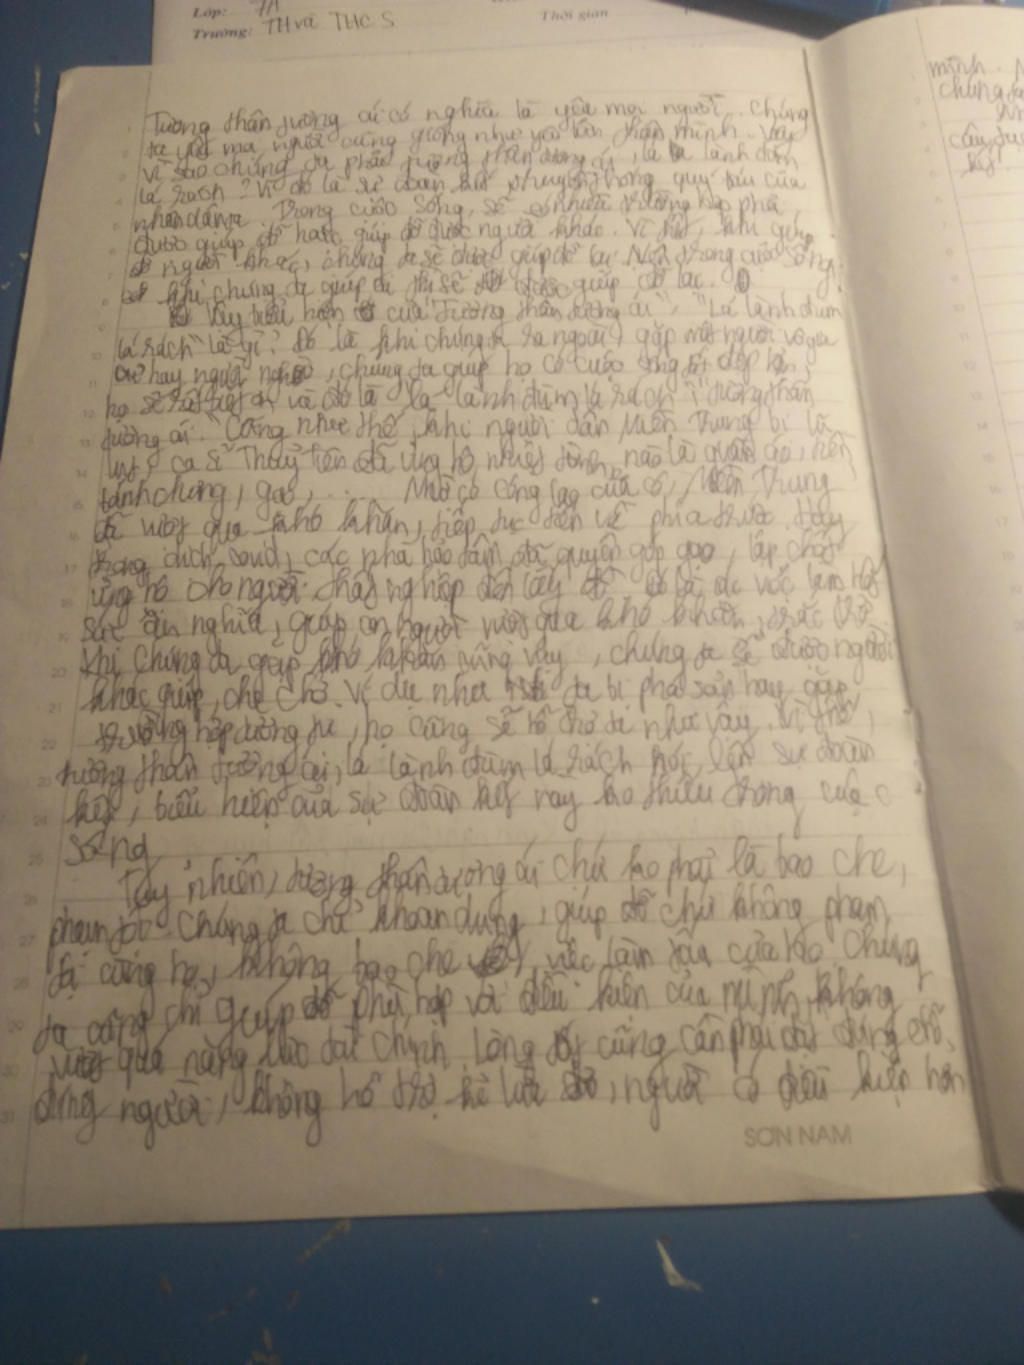 Lớp: 7A
Trường: TH và THCS
Thời gian
Tương thân tương ái có nghĩa là yêu mọi người. Chúng
ta yêu mọi người cũng giống như yêu bản thân mình. Vậy
vì sao chúng ta phải tương thân tương ái, lá lành đùm
lá rách? Vì đó là sự đoàn kết truyền thống quý báu của
nhân dân ta. Trong cuộc sống, sẽ có nhiều trường hợp phải
được giúp đỡ hoặc giúp đỡ được người khác. Vì thế, khi giúp
đỡ người khác, chúng ta sẽ được giúp đỡ lại. Nên trong cuộc sống,
khi chúng ta giúp đỡ thì sẽ được giúp đỡ lại.
Vậy biểu hiện của "Tương thân tương ái", "Lá lành đùm
lá rách" là gì? Đó là khi chúng ta ra ngoài, gặp một người vô gia
cư hay người nghèo, chúng ta giúp họ có cuộc sống tốt đẹp hơn,
họ sẽ rất biết ơn và đó là "lá lành đùm lá rách", "tương thân
tương ái". Cũng như thế, khi người dân Miền Trung bị lũ
lụt, ca sĩ Thuỷ Tiên đã ủng hộ nhiệt tình, nào là quần áo, tiền,
bánh chưng, gạo, ... Nhờ có công lao của cô, Miền Trung
đã vượt qua khó khăn, tiếp tục tiến về phía trước. Hay
trong dịch covid, các nhà hảo tâm đã quyên góp gạo, lập chốt
ủng hộ cho người thất nghiệp đến lấy đồ. Đó là các việc làm hết
sức ân nghĩa, giúp con người vượt qua khó khăn, thách thức
Khi chúng ta gặp khó khăn cũng vậy, chúng ta sẽ được người
khác giúp, che chở. Ví dụ như ta bị phá sản hay gặp
trường hợp tương tự, họ cũng sẽ hỗ trợ ta như vậy. Vì thế,
tương thân tương ái, lá lành đùm lá rách nói lên sự đoàn
kết, biểu hiện của sự đoàn kết này ko thiếu trong cuộc
sống
Tuy nhiên, tương thân tương ái chứ ko phải là bao che,
phạm tội. Chúng ta chỉ khoan dung, giúp đỡ chứ không phạm
tội cùng họ, không bao che việc làm xấu của họ. Chúng
ta cũng chỉ giúp đỡ phù hợp với điều kiện của mình, không
vượt quá năng lực tài chính. Lòng tốt cũng cần phải đặt đúng chỗ,
đúng người, không hỗ trợ kẻ lừa đảo, người có điều kiện hơn
SƠN NAM
mình.
chúng ta